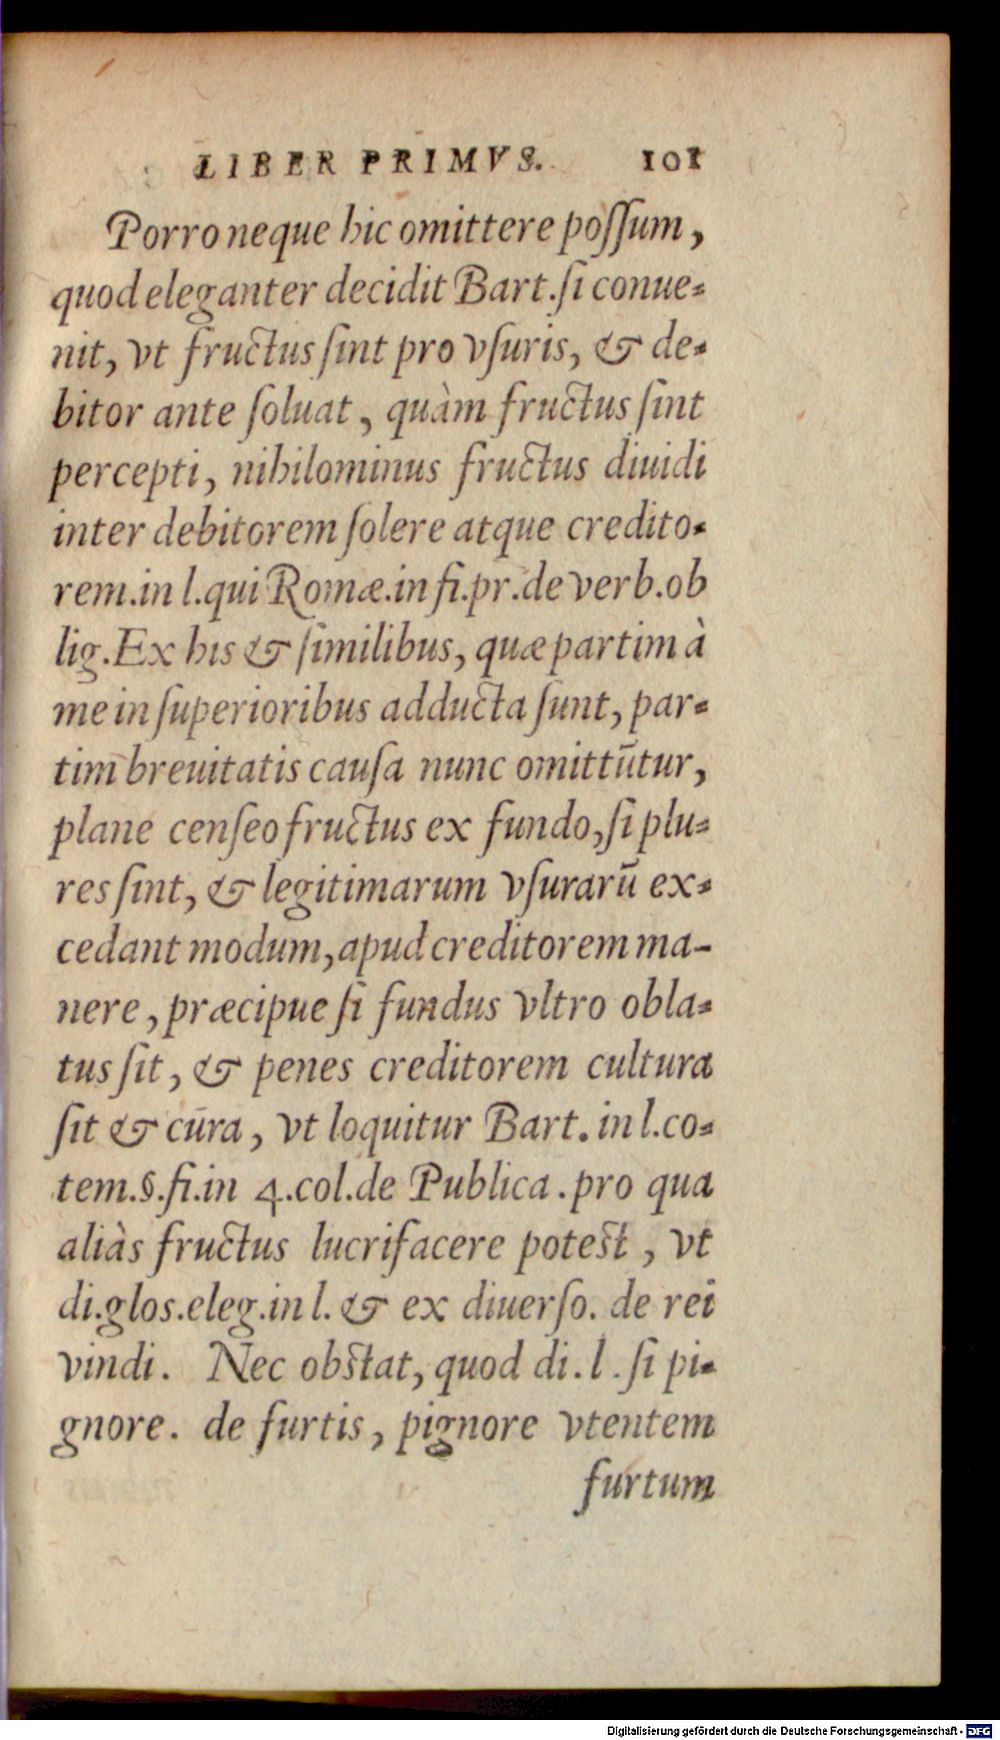 LIBER PRIMVS. 101
Porro neque hic omittere poſſum,
quod eleganter decidit Bart. ſi conue-
nit, vt fructus ſint pro vſuris, & de-
bitor ante ſoluat, quàm fructus ſint
percepti, nihilominus fructus diuidi
inter debitorem ſolere atque credito-
rem. in l. qui Romæ. in fi. pr. de verb. ob
lig. Ex his & ſimilibus, quæ partim à
me in ſuperioribus adducta ſunt, par-
tim breuitatis cauſa nunc omittũtur,
plane cenſeo fructus ex fundo, ſi plu-
res ſint, & legitimarum vſurarũ ex-
cedant modum, apud creditorem ma-
nere, præcipue ſi fundus vltro obla-
tus ſit, & penes creditorem cultura
ſit & cura, vt loquitur Bart. in l. co-
tem. §. fi. in 4. col. de Publica. pro qua
aliàs fructus lucrifacere poteſt, vt
di. glos. eleg. in l. & ex diuerſo. de rei
vindi. Nec obſtat, quod di. l. ſi pi-
gnore. de furtis, pignore vtentem
furtum
Digitalisierung gefördert durch die Deutsche Forschungsgemeinschaft - DFG